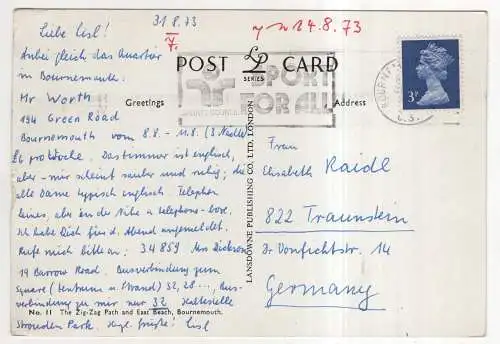 31.8.73
14.8.73
Liebe Lisl!
Anbei gleich das Quartier
in Bournemouth:
Mr Worth
194 Green Road
Bournemouth vom 8.8. - 11.8. (3 Nächte)
£6 pro Woche. Das Zimmer ist englisch,
aber mir scheint sauber und ruhig; die
alte Dame typisch englisch. Telephon
keines, aber in der Nähe a telephone-box.
Ich habe Dich für d. Abend angemeldet.
Rufe mich bitte an: 34859 Mrs Dickson
19 Barrow Road. Busverbindung zum
Square (Zentrum u. Strand) 52, 28 ..., Bus-
verbindung zu mir nur 32 Haltestelle
Strouden Park. Grüße! Lisl
POST CARD
LP
SERIES
Greetings
Address
SPORT
FOR ALL
BOURNEMOUTH
3P
LANSDOWNE PUBLISHING CO, LTD, LONDON
Frau
Elisabeth Raidl
822 Traunstein
Dr Vonfichtstr. 14
Germany
No. 11 The Zig-Zag Path and East Beach, Bournemouth.